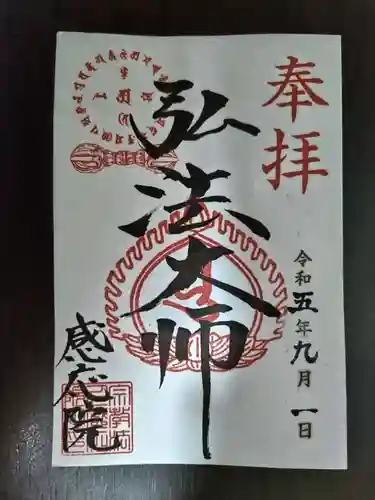 奉拝
令和五年九月一日
弘法大师
感応院